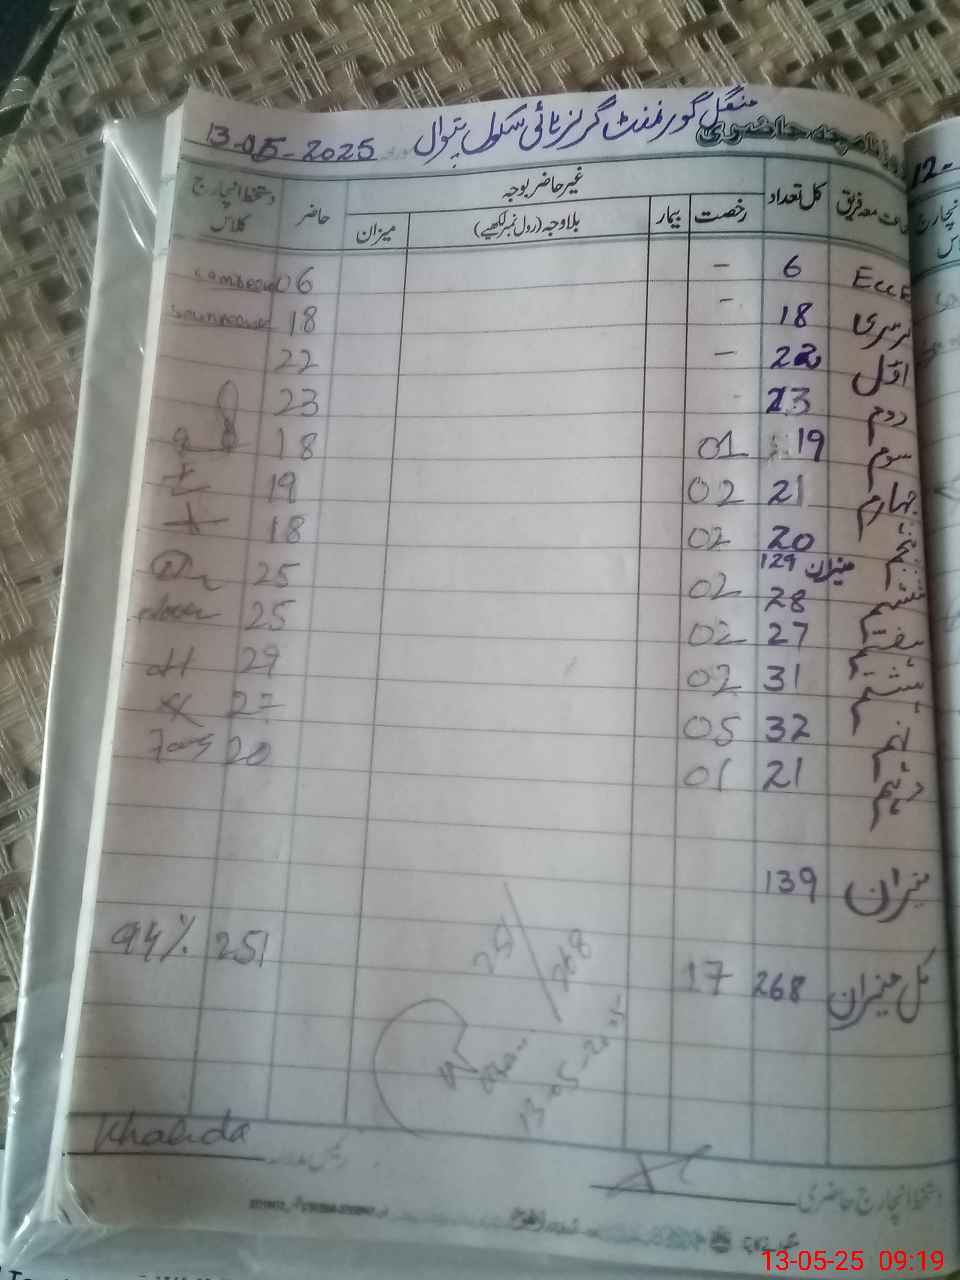 منگل گورنمنٹ گرلز ہائی سکول پتوال 13-05-2025
روزنامچہ حاضری
جماعت معہ فریق کل تعداد غیر حاضر بوجہ حاضر دستخط انچارج کلاس
رخصت بیمار بلاوجہ (رول نمبر لکھیے) میزان
ECCE 6 - 06
نرسری 18 - 18
اول 22 - 22
دوم 23 23
سوم 19 01 18
چہارم 21 02 19
پنجم 20 02 18
میزان 129
ششم 28 02 25
ہفتم 27 02 25
ہشتم 31 02 29
نہم 32 05 27
دہم 21 01 20
میزان 139
کل میزان 268 17 251 94%
251/268
13-05-2025
Khalida
رئیس مدرسہ
دستخط انچارج حاضری
12-
13-05-25 09:19